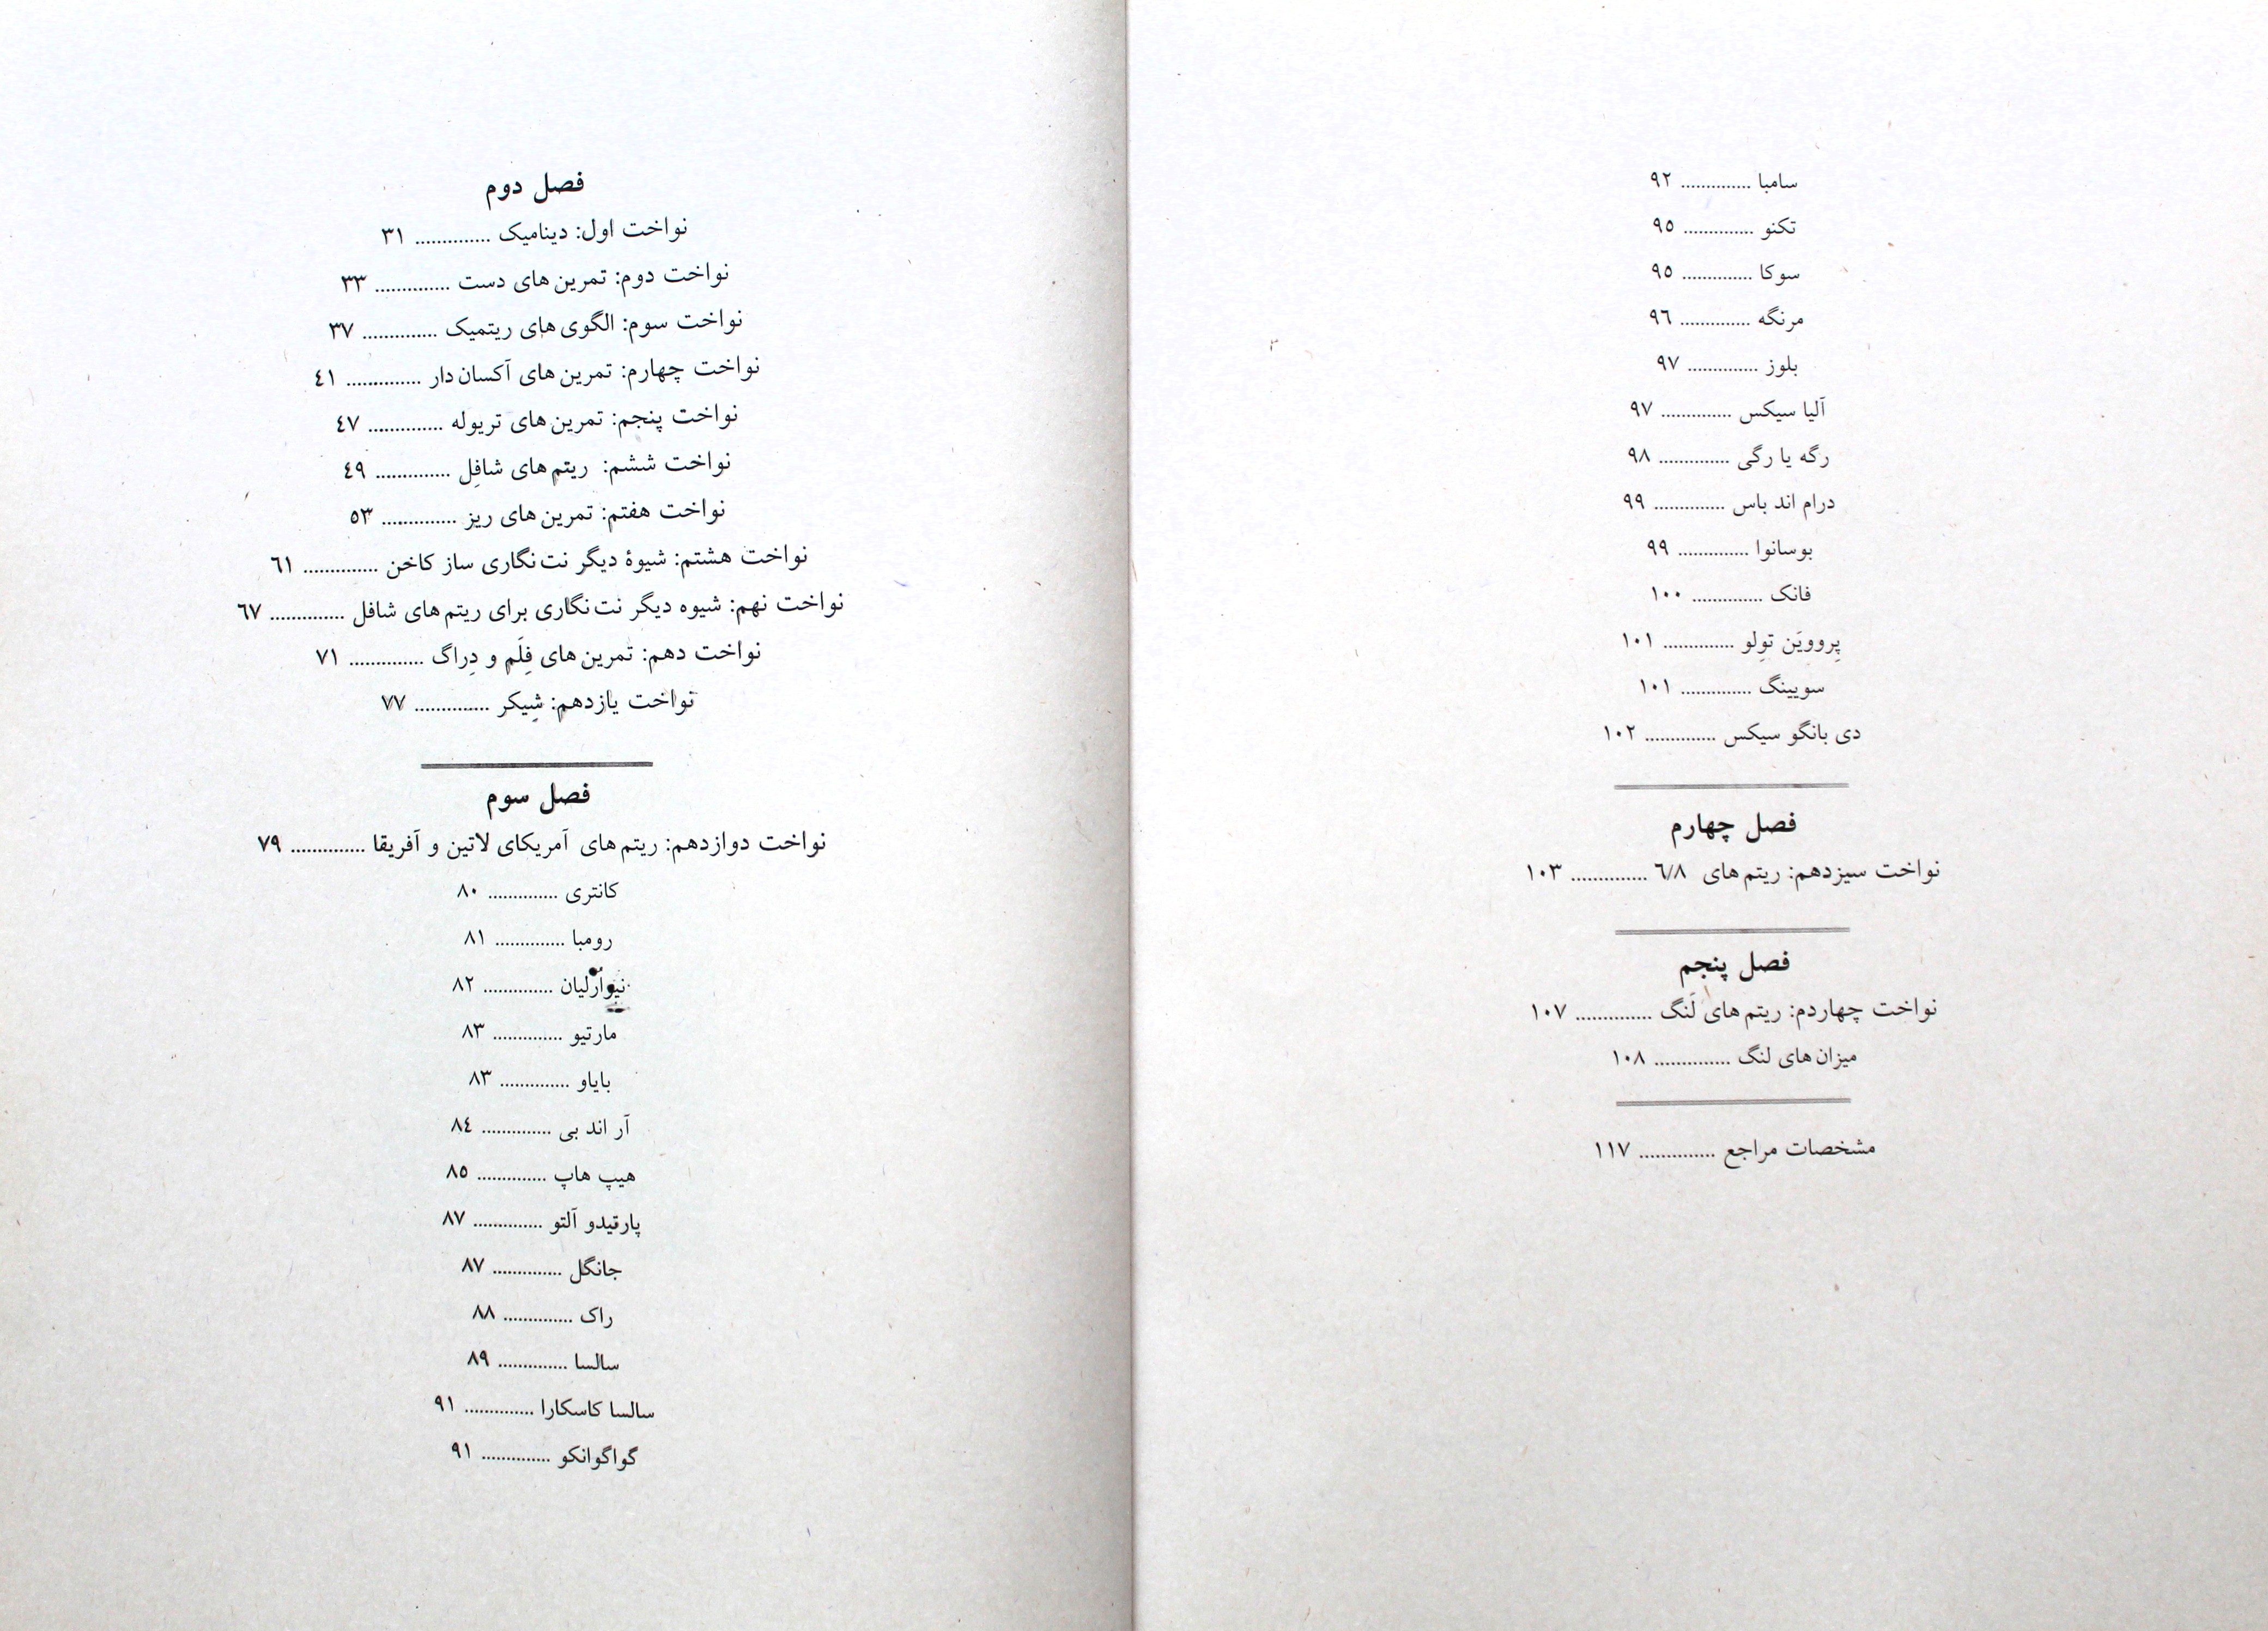 فصل دوم
نواخت اول: دینامیک .............. ۳۱
نواخت دوم: تمرین‌های دست .............. ۳۳
نواخت سوم: الگوی‌های ریتمیک .............. ۳۷
نواخت چهارم: تمرین‌های آکسان‌دار .............. ٤۱
نواخت پنجم: تمرین‌های تریوله .............. ٤۷
نواخت ششم: ریتم‌های شافِل .............. ٤۹
نواخت هفتم: تمرین‌های ریز .............. ٥۳
نواخت هشتم: شیوۀ دیگر نت‌نگاری ساز کاخن .............. ٦۱
نواخت نهم: شیوه دیگر نت‌نگاری برای ریتم‌های شافل .............. ٦۷
نواخت دهم: تمرین‌های فِلَم و دِراگ .............. ۷۱
نواخت یازدهم: شِیکر .............. ۷۷
فصل سوم
نواخت دوازدهم: ریتم‌های آمریکای لاتین و آفریقا .............. ۷۹
کانتری .............. ۸۰
رومبا .............. ۸۱
نیواُرلیان .............. ۸۲
مارتیو .............. ۸۳
بایاو .............. ۸۳
آر اند بی .............. ۸٤
هیپ هاپ .............. ۸٥
پارقیدو آلتو .............. ۸۷
جانگل .............. ۸۷
راک .............. ۸۸
سالسا .............. ۸۹
سالسا کاسکارا .............. ۹۱
گواگوانکو .............. ۹۱
سامبا .............. ۹۲
تکنو .............. ۹٥
سوکا .............. ۹٥
مرنگه .............. ۹٦
بلوز .............. ۹۷
آلیا سیکس .............. ۹۷
رگه یا رگی .............. ۹۸
درام اند باس .............. ۹۹
بوسانوا .............. ۹۹
فانک .............. ۱۰۰
پِروویَن تولِو .............. ۱۰۱
سویینگ .............. ۱۰۱
دی بانگو سیکس .............. ۱۰۲
فصل چهارم
نواخت سیزدهم: ریتم‌های ٦/۸ .............. ۱۰۳
فصل پنجم
نواخت چهاردم: ریتم‌های لَنگ .............. ۱۰۷
میزان‌های لنگ .............. ۱۰۸
مشخصات مراجع .............. ۱۱۷